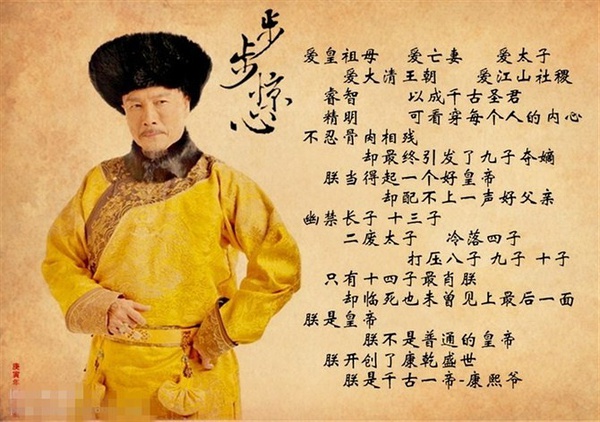 步步惊心
爱皇祖母 爱亡妻 爱太子
爱大清王朝 爱江山社稷
睿智 以成千古圣君
精明 可看穿每个人的内心
不忍骨肉相残
却最终引发了九子夺嫡
朕当得起一个好皇帝
却配不上一声好父亲
幽禁长子 十三子
二废太子 冷落四子
打压八子 九子 十子
只有十四子最肖朕
却临死也未曾见上最后一面
朕是皇帝
朕不是普通的皇帝
朕开创了康乾盛世
朕是千古一帝-康熙爷
庚寅年